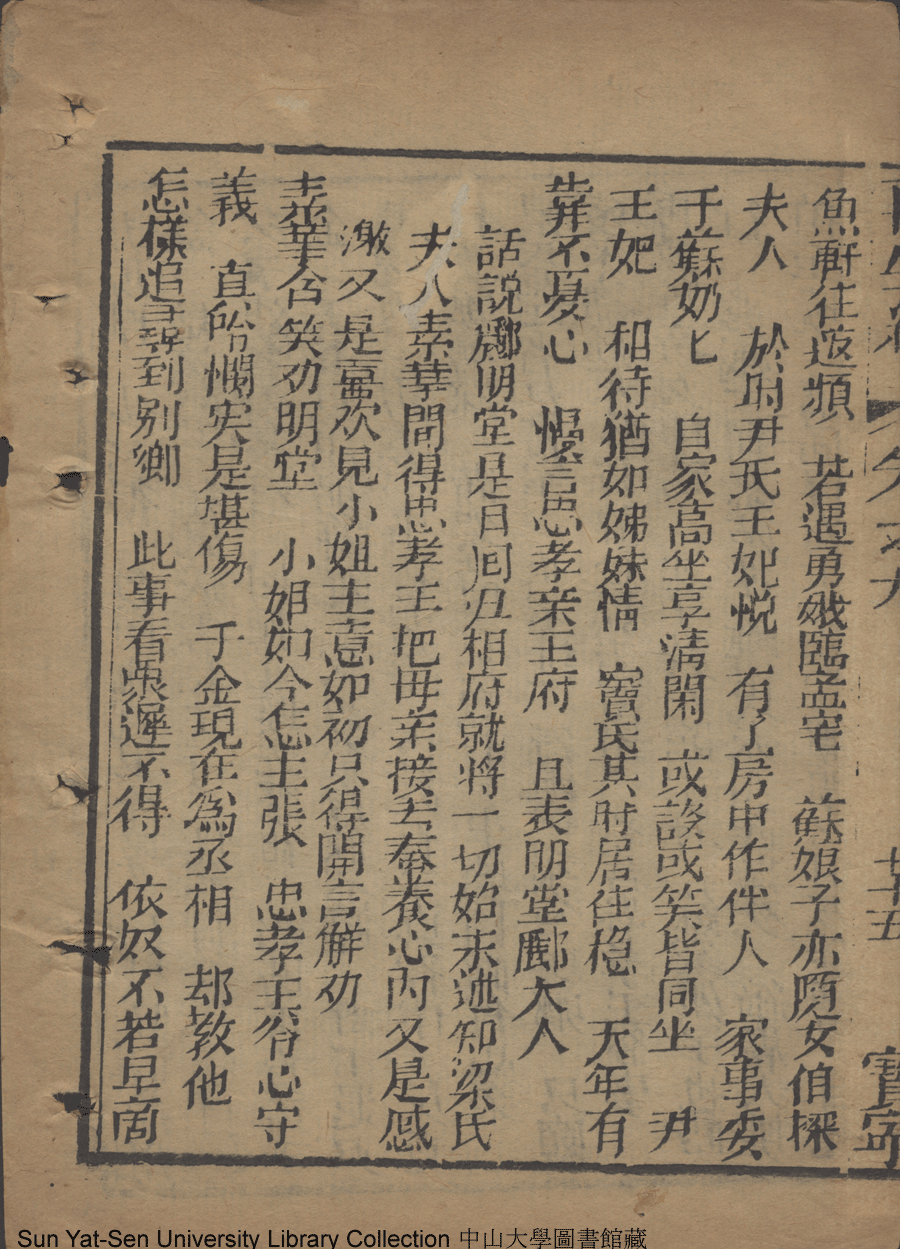 魚軒往返頻　若遇勇娥臨孟宅　蘇娘子亦隨女伯探
夫人　於時尹氏王妃悅　有了房中作伴人　家事委
于蘇奶匕　自家高坐享清閑　或談或笑皆同坐　尹
王妃　相待猶如姊妹情　竇氏其時居住穩　天年有
靠不憂心　慢言忠孝亲王府　且表明堂酈大人
話說酈明堂是日回丞相府就将一切始末述知梁氏
夫人素華聞得忠孝王把母亲接去奉養心內又是感
激又是喜欢見小姐主意如初只得開言解劝
素華含笑劝明堂　小姐如今怎主張　忠孝王爷心守
義　直恁憫实是堪傷　千金現在為丞相　却教他
怎樣追尋到別鄉　此事看來遲不得　依奴不若早商
廿五
寶寧
Sun Yat-Sen University Library Collection 中山大學圖書館藏